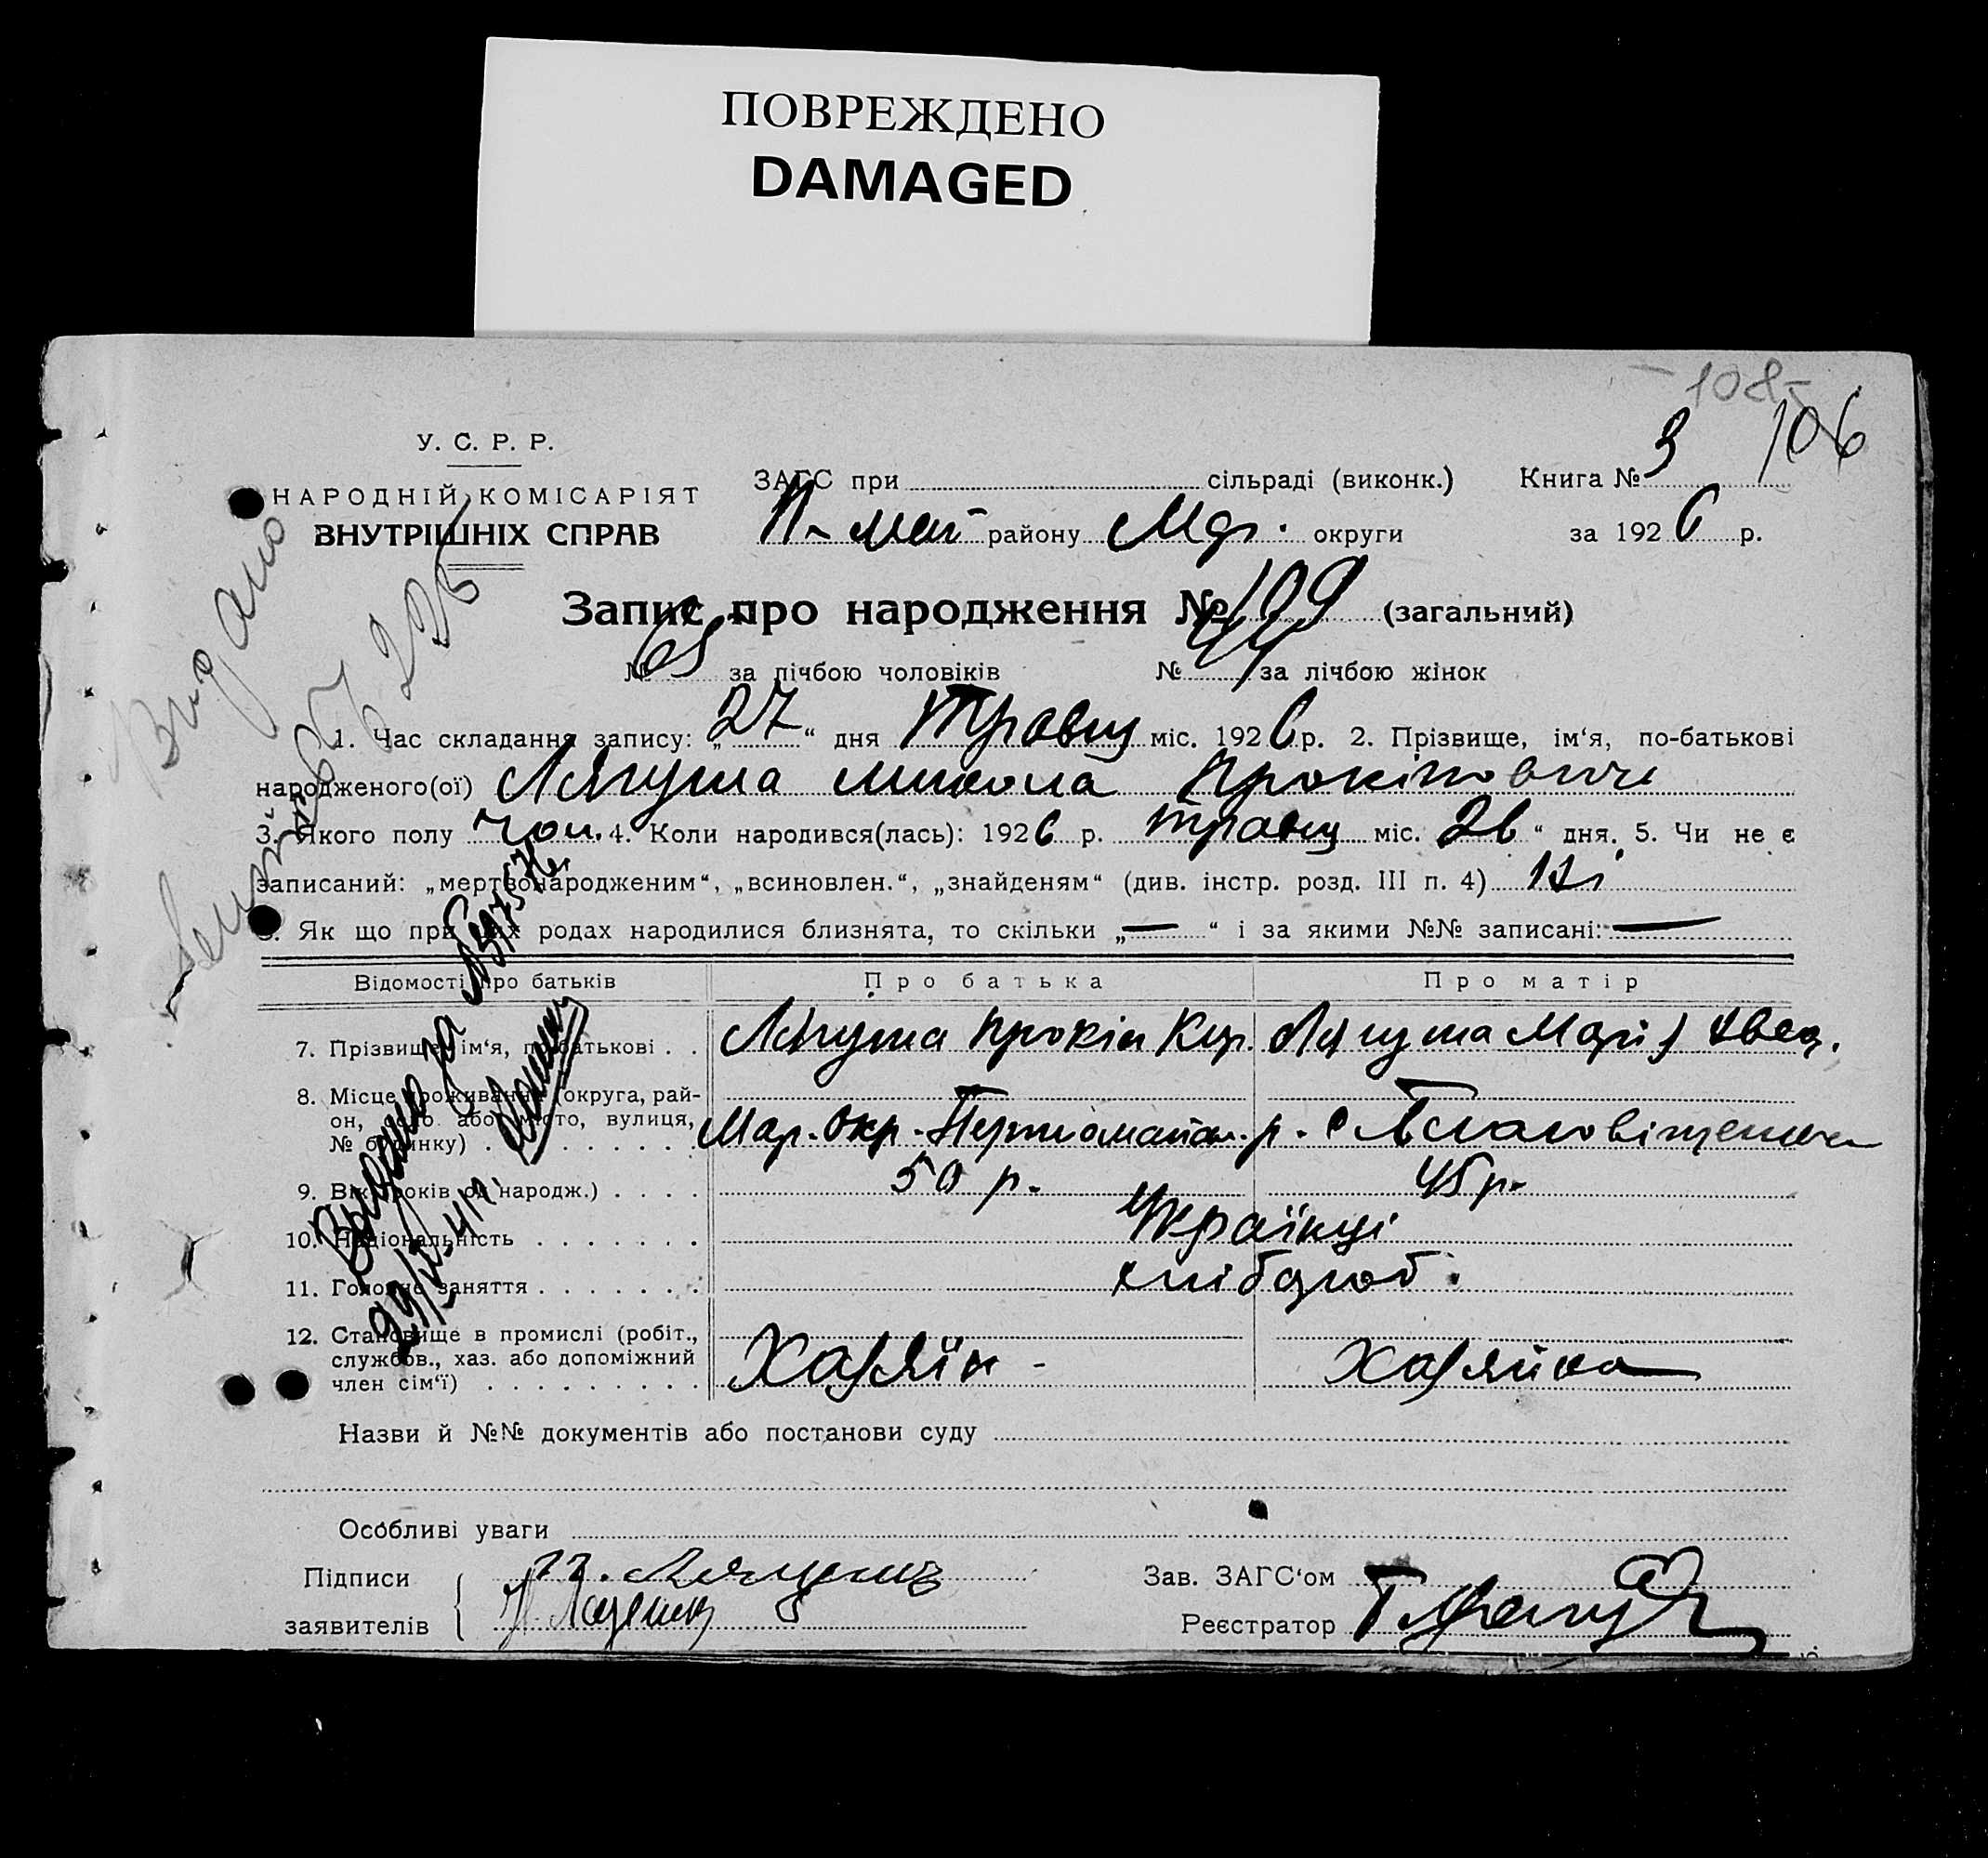 ПОВРЕЖДЕНО
DAMAGED
-108-
106
У. С. Р. Р.
НАРОДНІЙ КОМІСАРІЯТ
ВНУТРІШНІХ СПРАВ
ЗАГС при сільраді (виконк.) Книга № 3
П-май району Мар. округи за 1926 р.
Запис про народження № 109 (загальний)
№ 65 за лічбою чоловіків № 44 за лічбою жінок
1. Час складання запису: „27“ дня Травця міс. 1926 р. 2. Прізвище, ім‘я, по-батькові
народженого(ої) Лягуша Микола Прокіпович
3. Якого полу чол. 4. Коли народився(лась): 1926 р. травця міс. 26 “ дня. 5. Чи не є
записаний: „мертвонародженим“, „всиновлен.“, „знайденям“ (див. інстр. розд. III п. 4) Ні
6. Як що при цих родах народилися близнята, то скільки „—“ і за якими №№ записані: —
Відомості про батьків Про батька Про матір
7. Прізвище, ім‘я, по-батькові . . Лягуша Прокіп Кир. Лягуша Марія
8. Місце проживання (округа, рай-
он, село або місто, вулиця,
№ будинку) . . . . . . . . . Мар. Окр. Первомайськ. р. с Благовіщенка
9. Вік (років од народж.) . . . . 50 р. 45 р.
10. Національність . . . . . . . Українці
11. Головне заняття . . . . . . . хлібороб.
12. Становище в промислі (робіт.,
службов., хаз. або допоміжний
член сім‘ї) . . . . . . . . . Хазяїн - Хазяйка
Назви й №№ документів або постанови суду
Особливі уваги
Підписи
заявителів
Зав. ЗАГС‘ом
Реєстратор
Видано
Видано